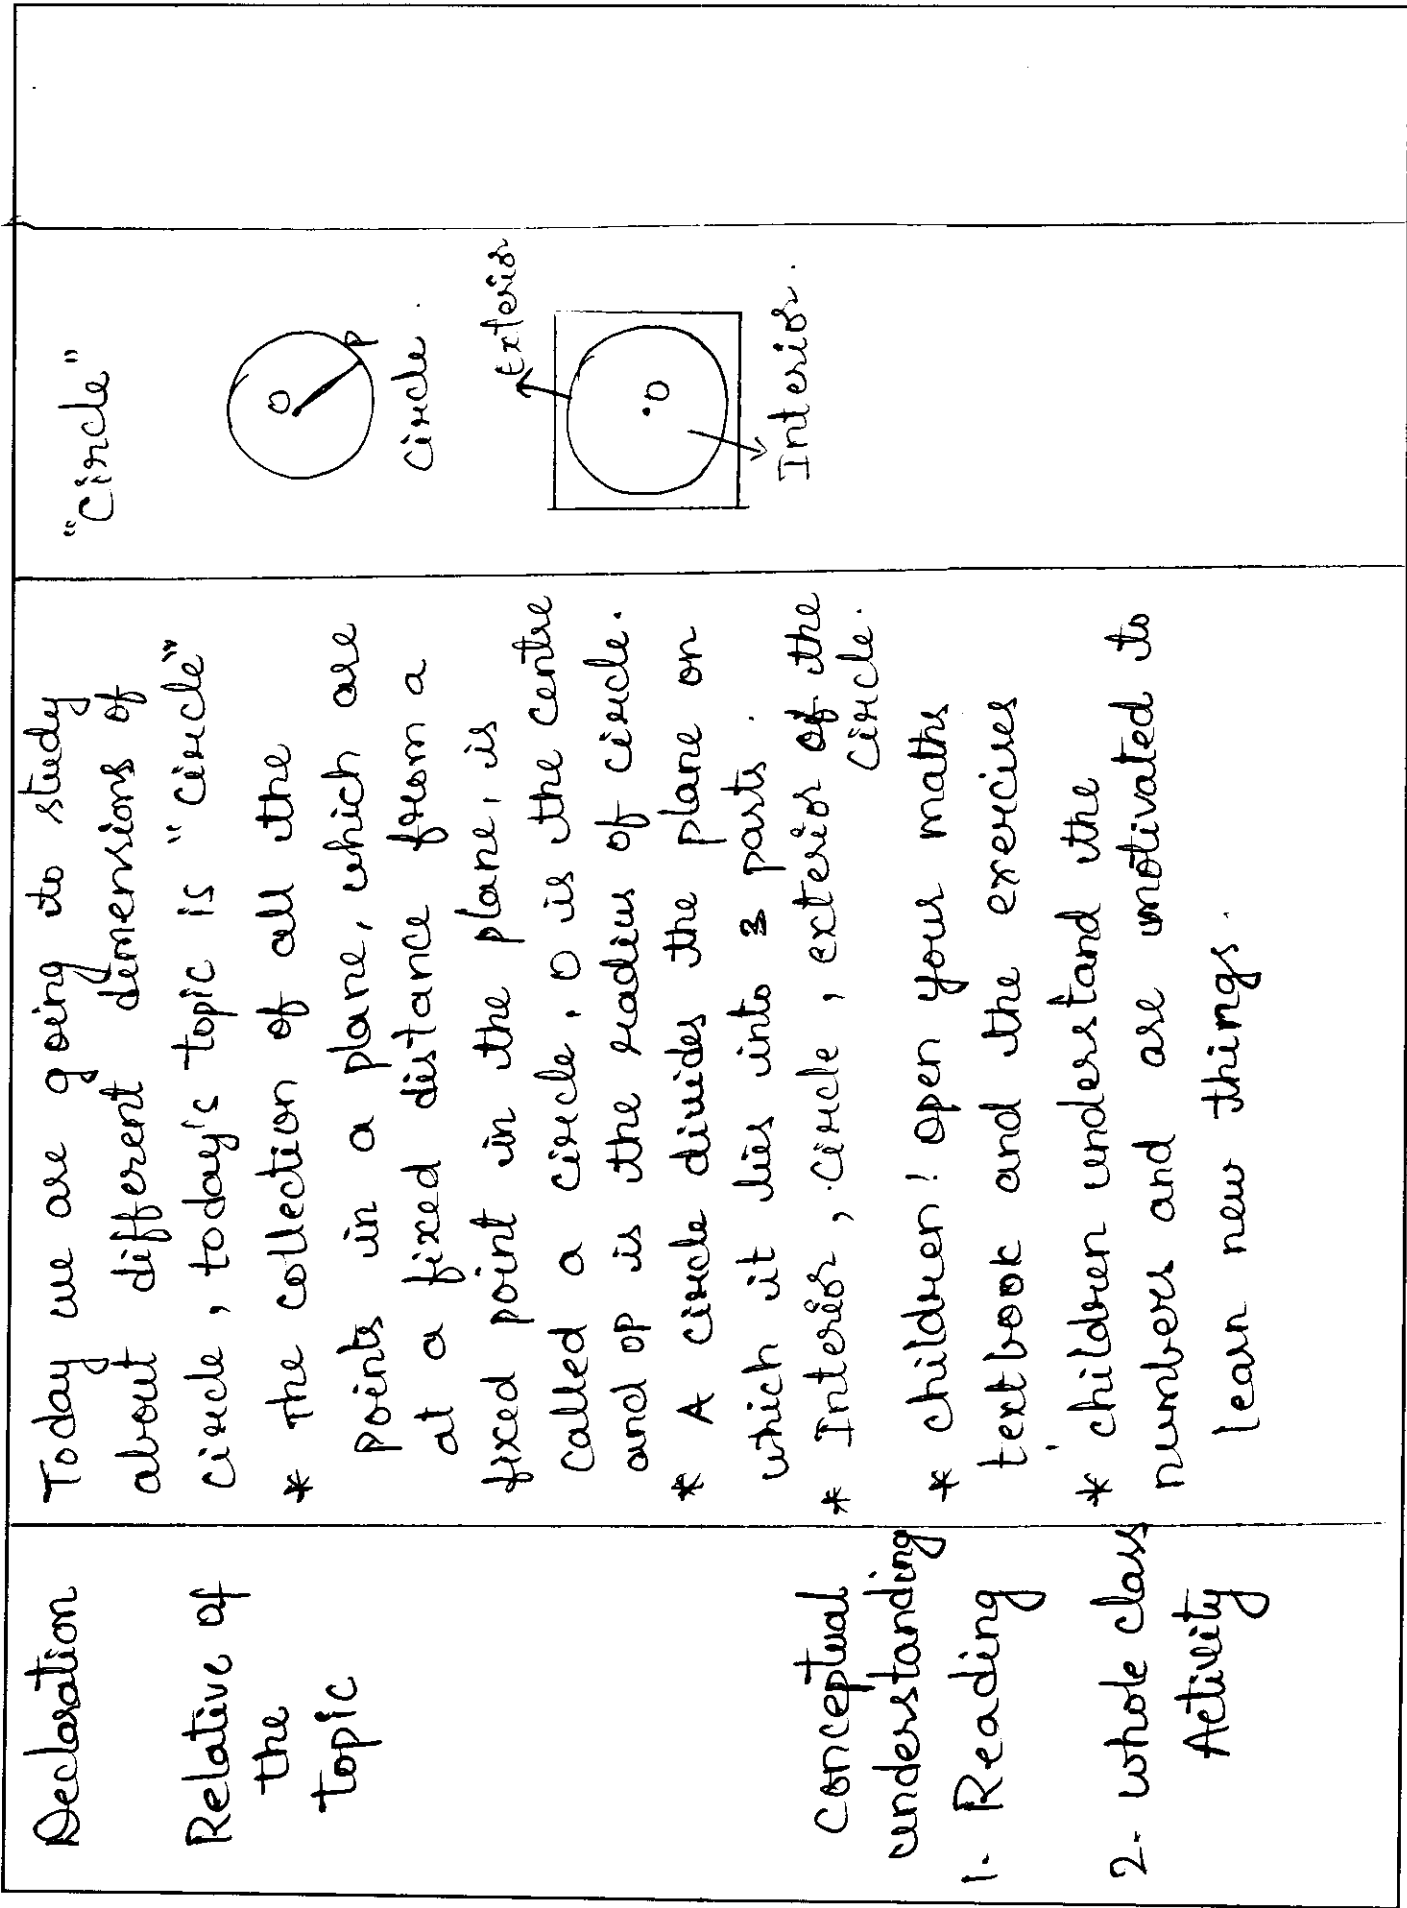 Declaration
Relative of
the
topic
conceptual
understanding
1- Reading
2- whole class
Activity
Today we are going to study
about different dimensions of
circle, today's topic is "circle"
* The collection of all the
points in a plane, which are
at a fixed distance from a
fixed point in the plane, is
called a circle, O is the centre
and OP is the radius of circle.
* A circle divides the plane on
which it lies into 3 parts.
* Interior, circle, exterior of the
circle.
* children! open your maths
textbook and the exercises
* children understand the
numbers and are motivated to
learn new things.
"Circle"
O
P
Circle.
Exterior
O
Interior.